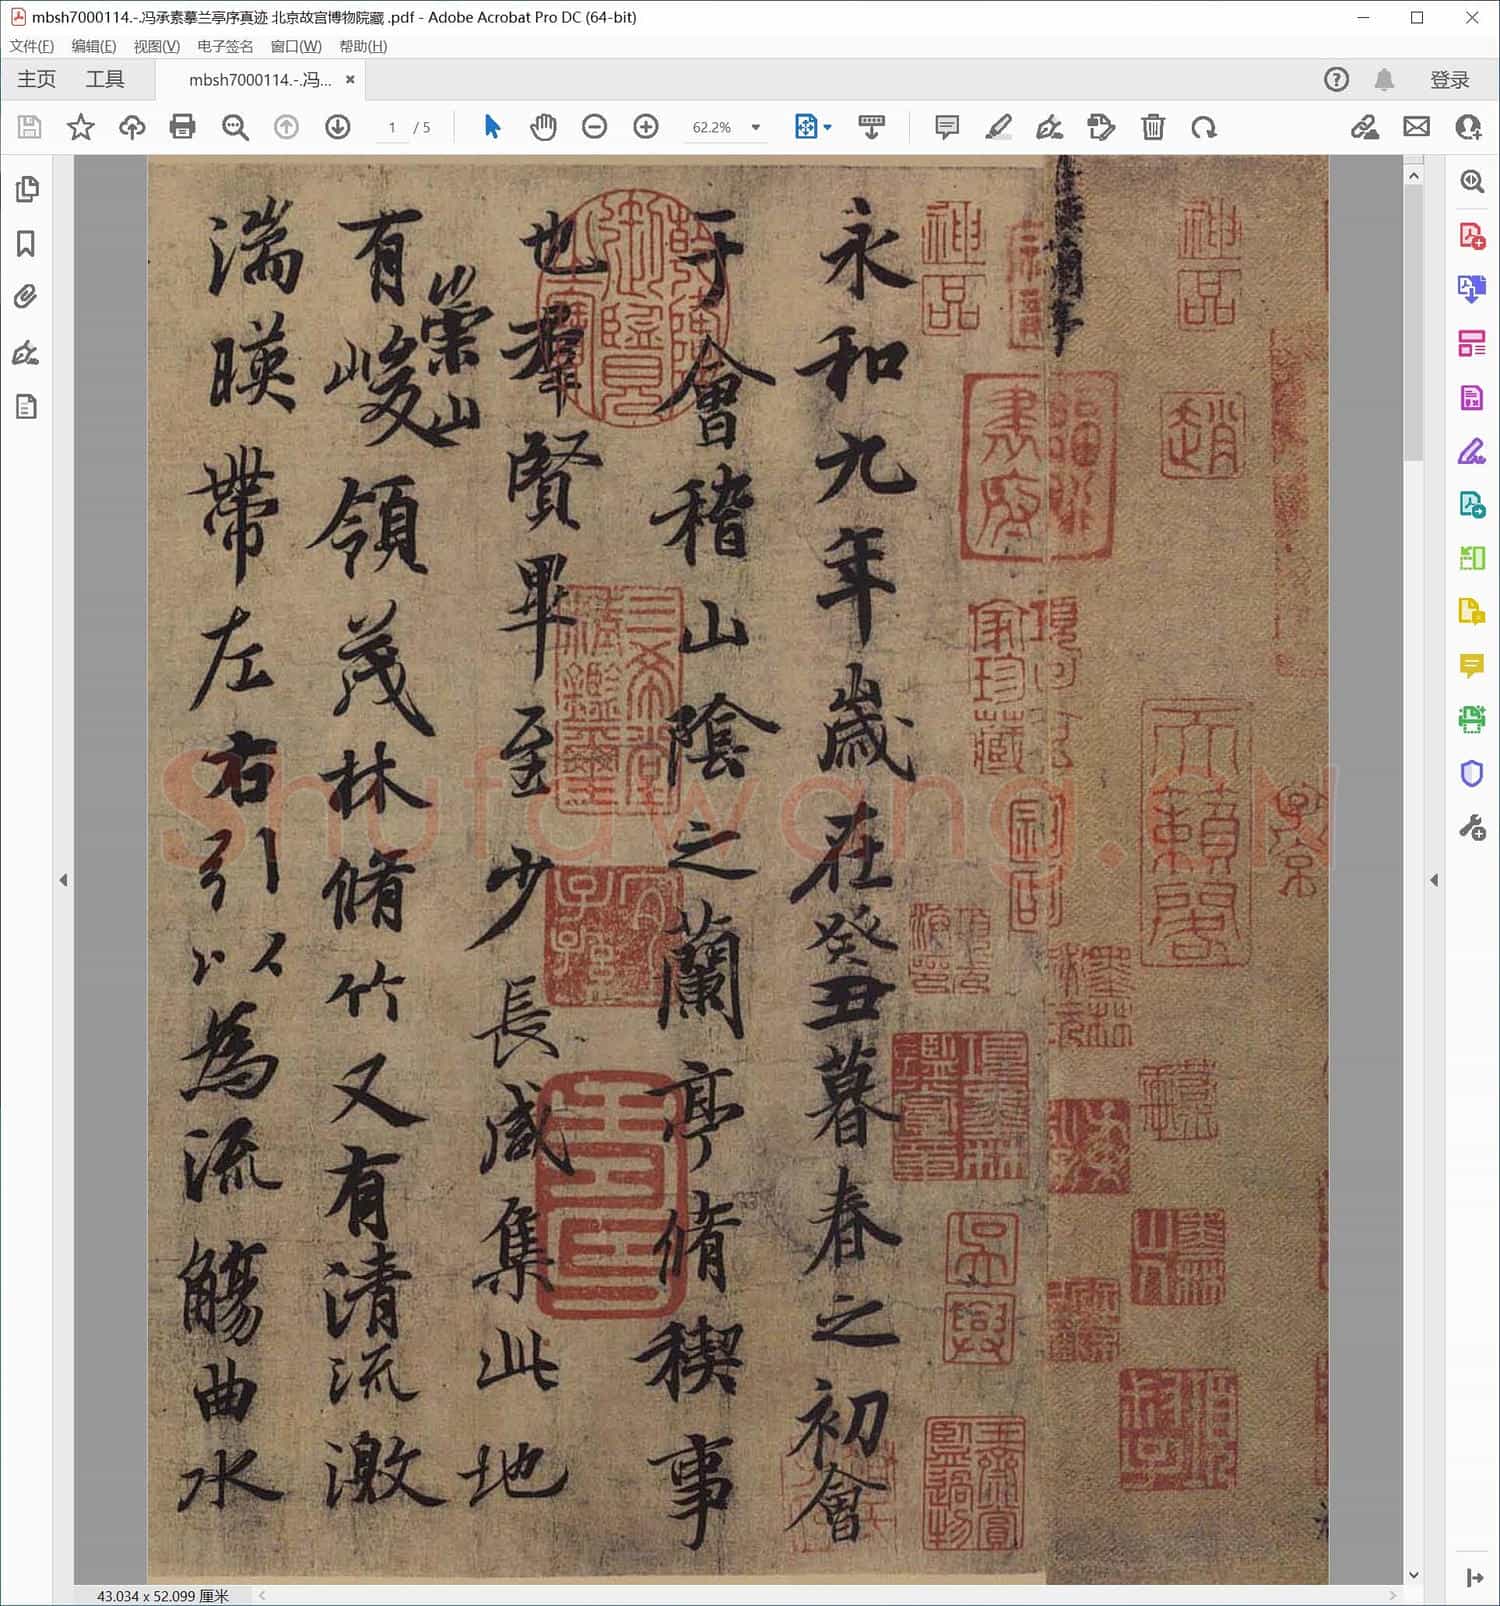 mbsh7000114.-.冯承素摹兰亭序真迹 北京故宫博物院藏 .pdf - Adobe Acrobat Pro DC (64-bit)
文件(F) 编辑(E) 视图(V) 电子签名 窗口(W) 帮助(H)
主页 工具 mbsh7000114.-.冯... 登录
1 / 5 62.2%
永和九年歲在癸丑暮春之初會
于會稽山陰之蘭亭脩稧事
也羣賢畢至少長咸集此地
有崇山峻領茂林脩竹又有清流激
湍暎帶左右引以為流觴曲水
神品
神品
趙
書府
三希堂精鑑璽
天籟閣
子京
吳興
宜子孫
Shufawang.CN
43.034 x 52.099 厘米